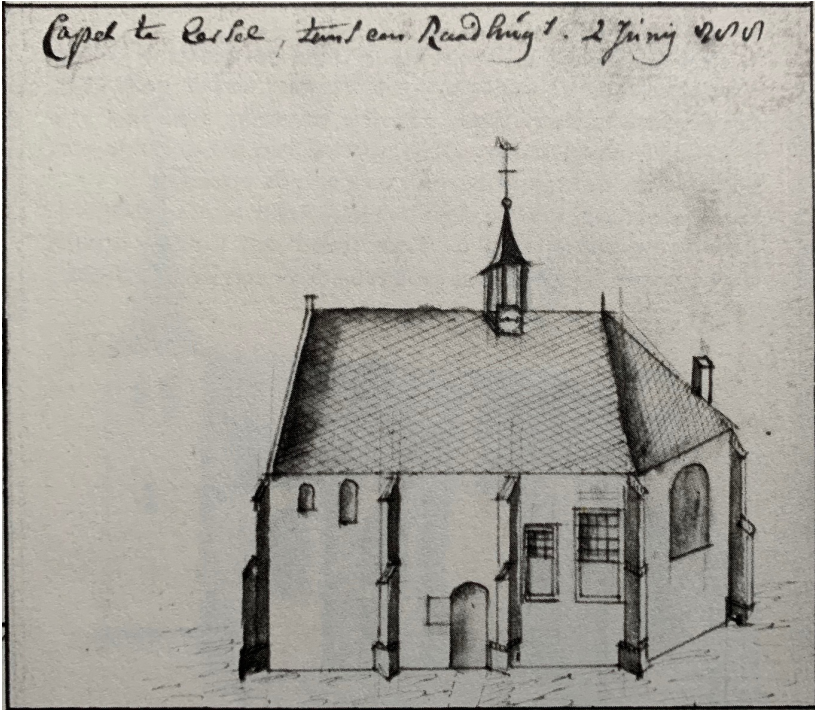 Capel te Eersel, tans een Raadhúys. 2 Junij